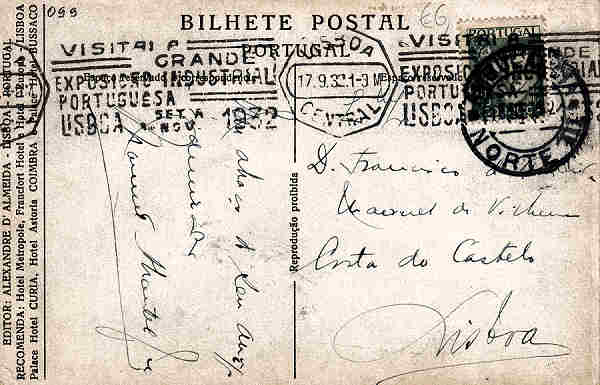 099
66
BILHETE POSTAL
PORTUGAL
Espaço reservado á correspondencia
VISITAI A
GRANDE
EXPOSIÇÃO INDUSTRIAL
PORTUGUESA
LISBOA SET. A NOV. 1932
LISBOA
17.9.32.1-3 M
CENTRAL
VISITAI A
GRANDE
EXPOSIÇÃO
PORTUGUESA
LISBOA
PORTUGAL
NORTE
D. Francisco
Manuel de Vilhena
Costa do Castelo
Lisboa
Reprodução proibida
Um abraço do seu amigo
Manuel
EDITOR: ALEXANDRE D'ALMEIDA - LISBOA - PORTUGAL
RECOMENDA: Hotel Metropole, Francfort Hotel e Hotel l'Europe - LISBOA
Palace Hotel CURIA, Hotel Astoria COIMBRA e Palace Hotel BUSSACO